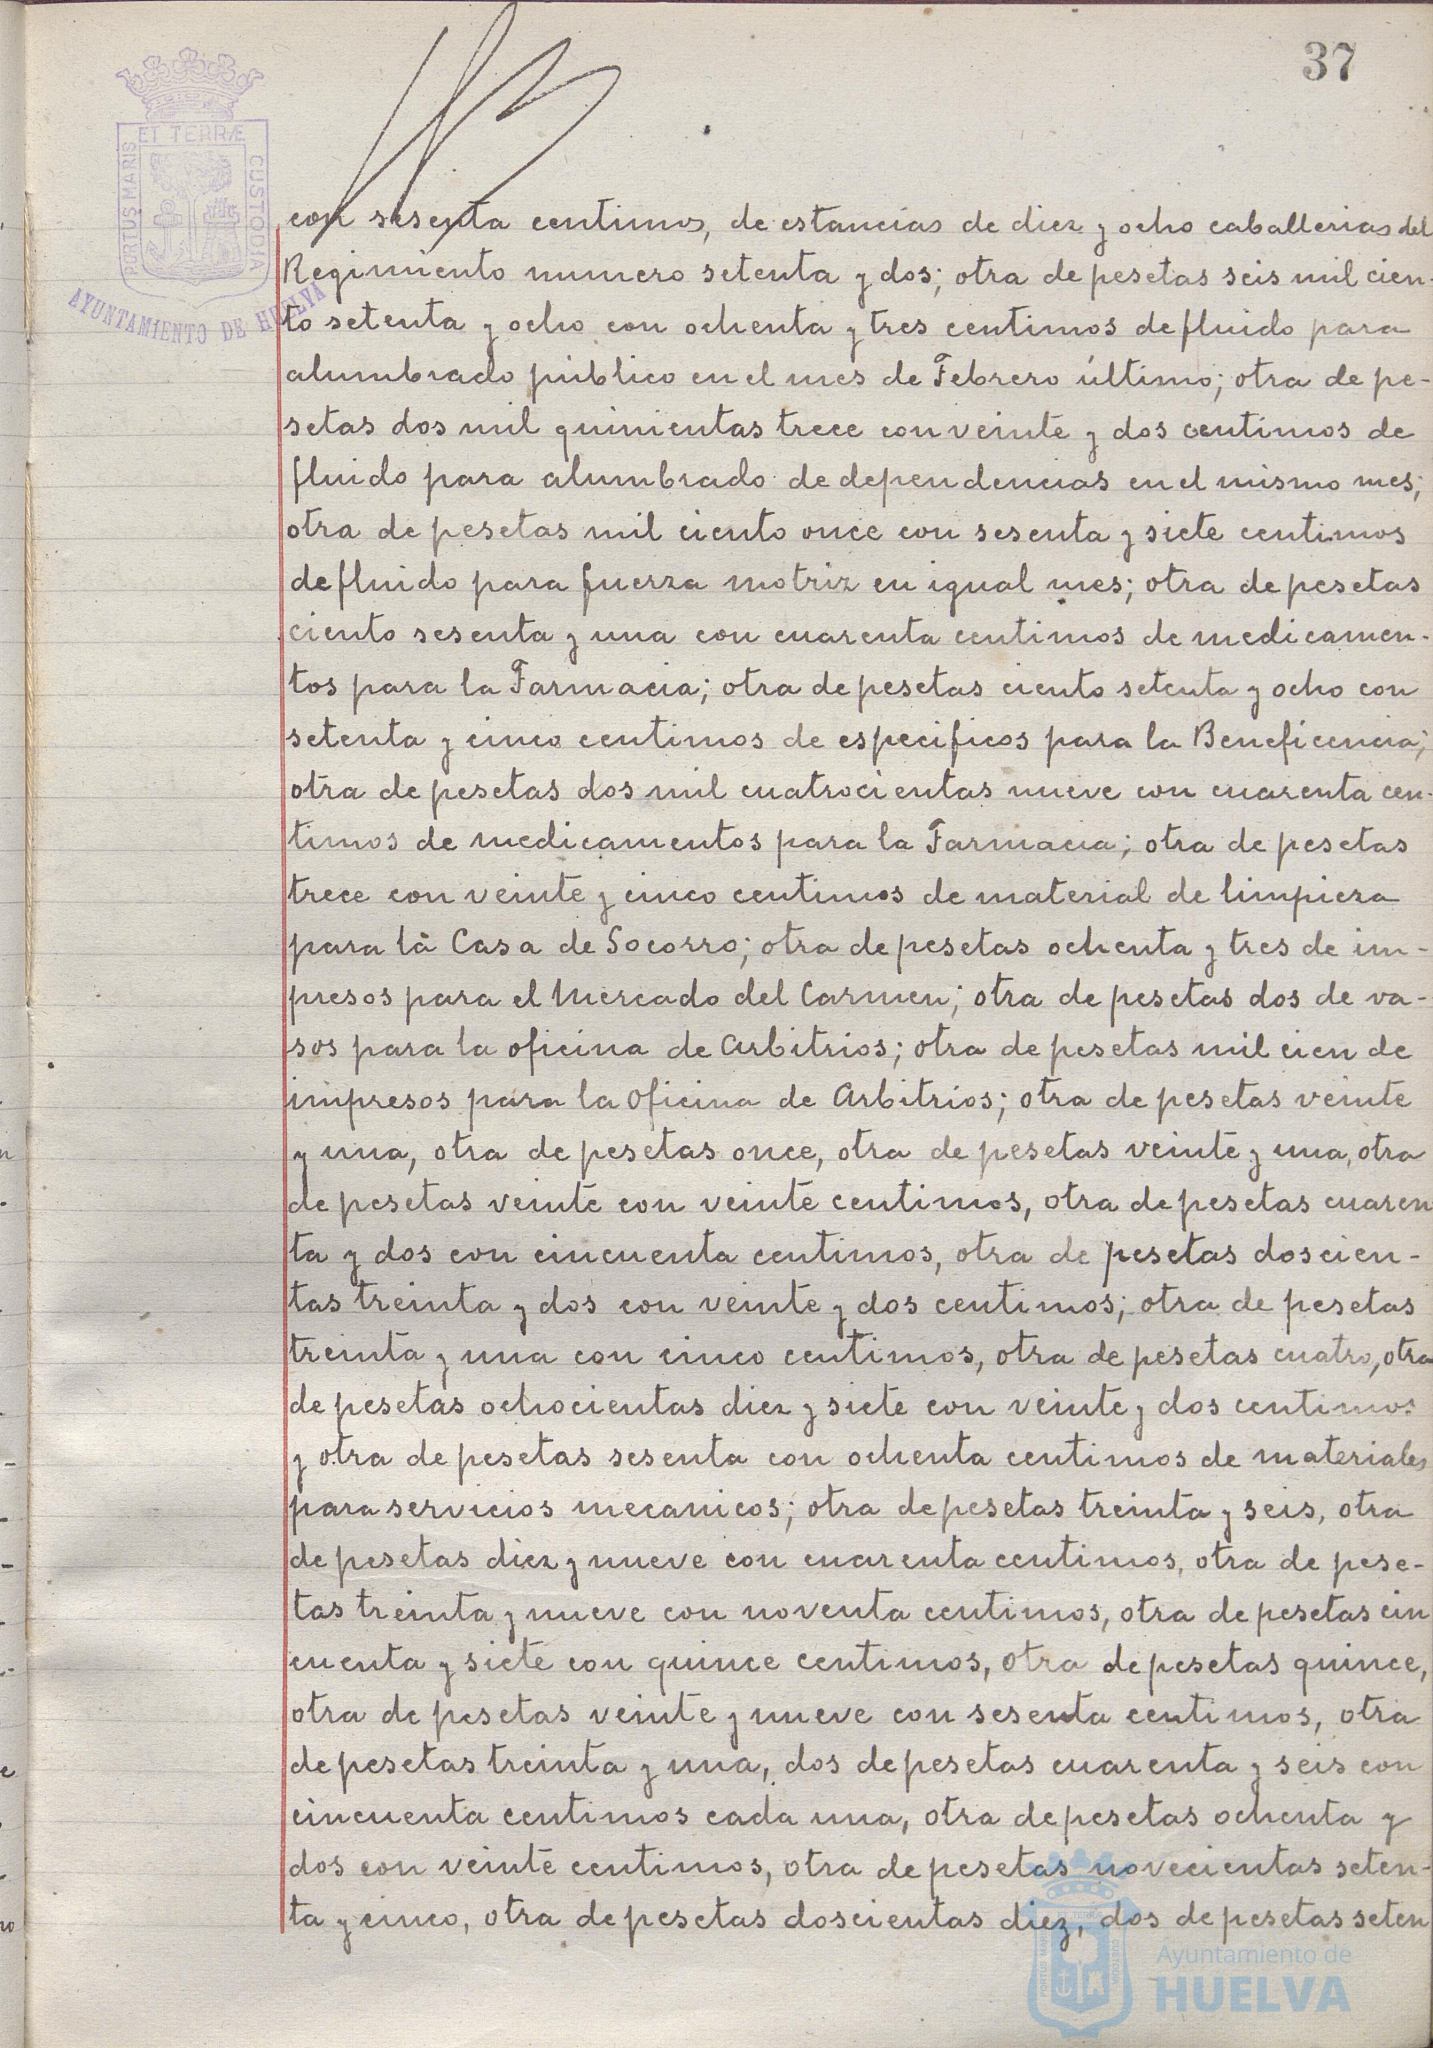 37
ET TERRÆ
PORTUS MARIS
CUSTODIA
AYUNTAMIENTO DE HUELVA
con sesenta centimos, de estancias de diez y ocho caballerias del
Regimiento numero setenta y dos; otra de pesetas seis mil cien-
to setenta y ocho con ochenta y tres centimos de fluido para
alumbrado público en el mes de Febrero último; otra de pe-
setas dos mil quinientas trece con veinte y dos centimos de
fluido para alumbrado de dependencias en el mismo mes;
otra de pesetas mil ciento once con sesenta y siete centimos
de fluido para fuerza motriz en igual mes; otra de pesetas
ciento sesenta y una con cuarenta centimos de medicamen-
tos para la Farmacia; otra de pesetas ciento setenta y ocho con
setenta y cinco centimos de especificos para la Beneficencia;
otra de pesetas dos mil cuatrocientas nueve con cuarenta cen-
timos de medicamentos para la Farmacia; otra de pesetas
trece con veinte y cinco centimos de material de limpieza
para la Casa de Socorro; otra de pesetas ochenta y tres de im-
presos para el Mercado del Carmen; otra de pesetas dos de va-
sos para la oficina de Arbitrios; otra de pesetas mil cien de
impresos para la oficina de Arbitrios; otra de pesetas veinte
y una, otra de pesetas once, otra de pesetas veinte y una, otra
de pesetas veinte con veinte centimos, otra de pesetas cuaren
ta y dos con cincuenta centimos, otra de pesetas doscien-
tas treinta y dos con veinte y dos centimos; otra de pesetas
treinta y una con cinco centimos, otra de pesetas cuatro, otra
de pesetas ochocientas diez y siete con veinte y dos centimos
y otra de pesetas sesenta con ochenta centimos de materiales
para servicios mecanicos; otra de pesetas treinta y seis, otra
de pesetas diez y nueve con cuarenta centimos, otra de pese-
tas treinta y nueve con noventa centimos, otra de pesetas cin
cuenta y siete con quince centimos, otra de pesetas quince,
otra de pesetas veinte y nueve con sesenta centimos, otra
de pesetas treinta y una, dos de pesetas cuarenta y seis con
cincuenta centimos cada una, otra de pesetas ochenta y
dos con veinte centimos, otra de pesetas novecientas seten-
ta y cinco, otra de pesetas doscientas diez, dos de pesetas seten
Ayuntamiento de
HUELVA